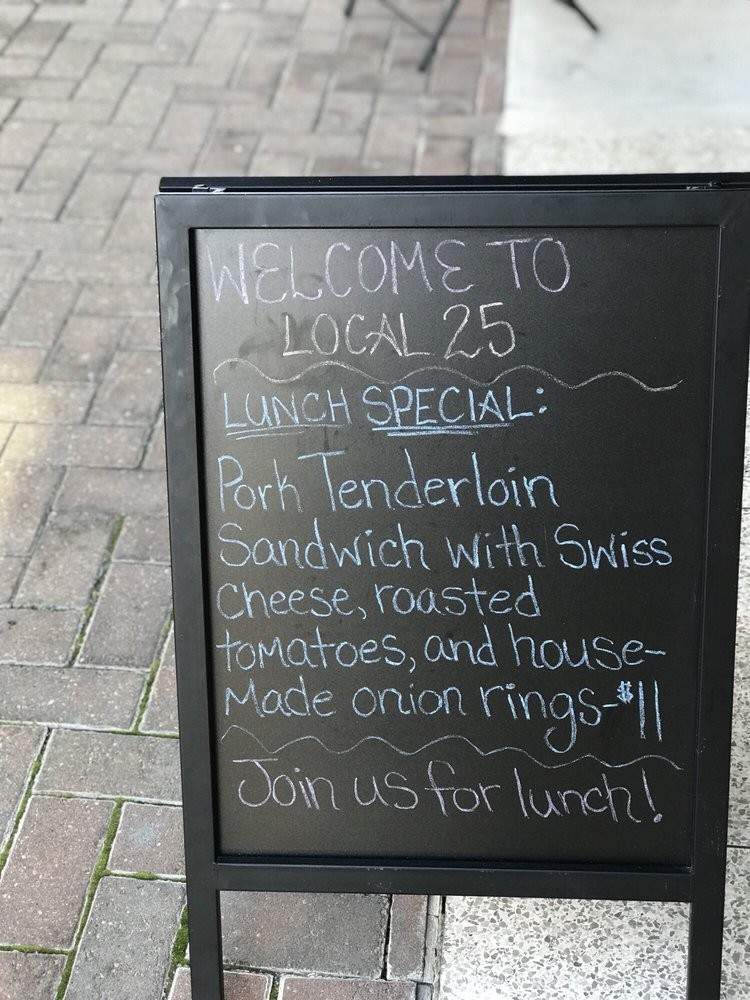 WELCOME TO
LOCAL 25
LUNCH SPECIAL:
Pork Tenderloin
Sandwich with Swiss
Cheese, roasted
tomatoes, and house-
Made onion rings-$11
Join us for lunch!